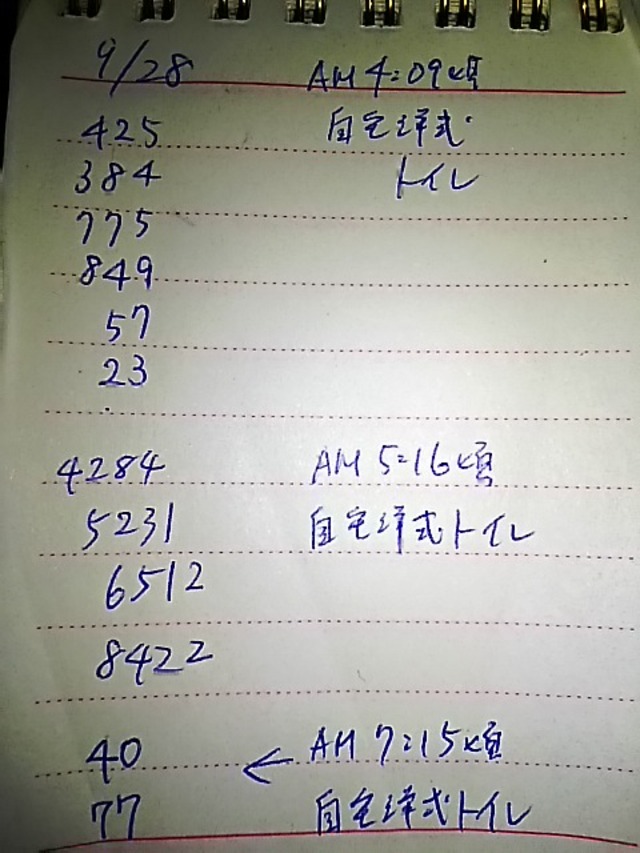 9/28 AM 4:09頃
425 自宅洋式
384 トイレ
775
849
57
23
4284 AM 5:16頃
5231 自宅洋式トイレ
6512
8422
40 ← AM 7:15頃
77 自宅洋式トイレ